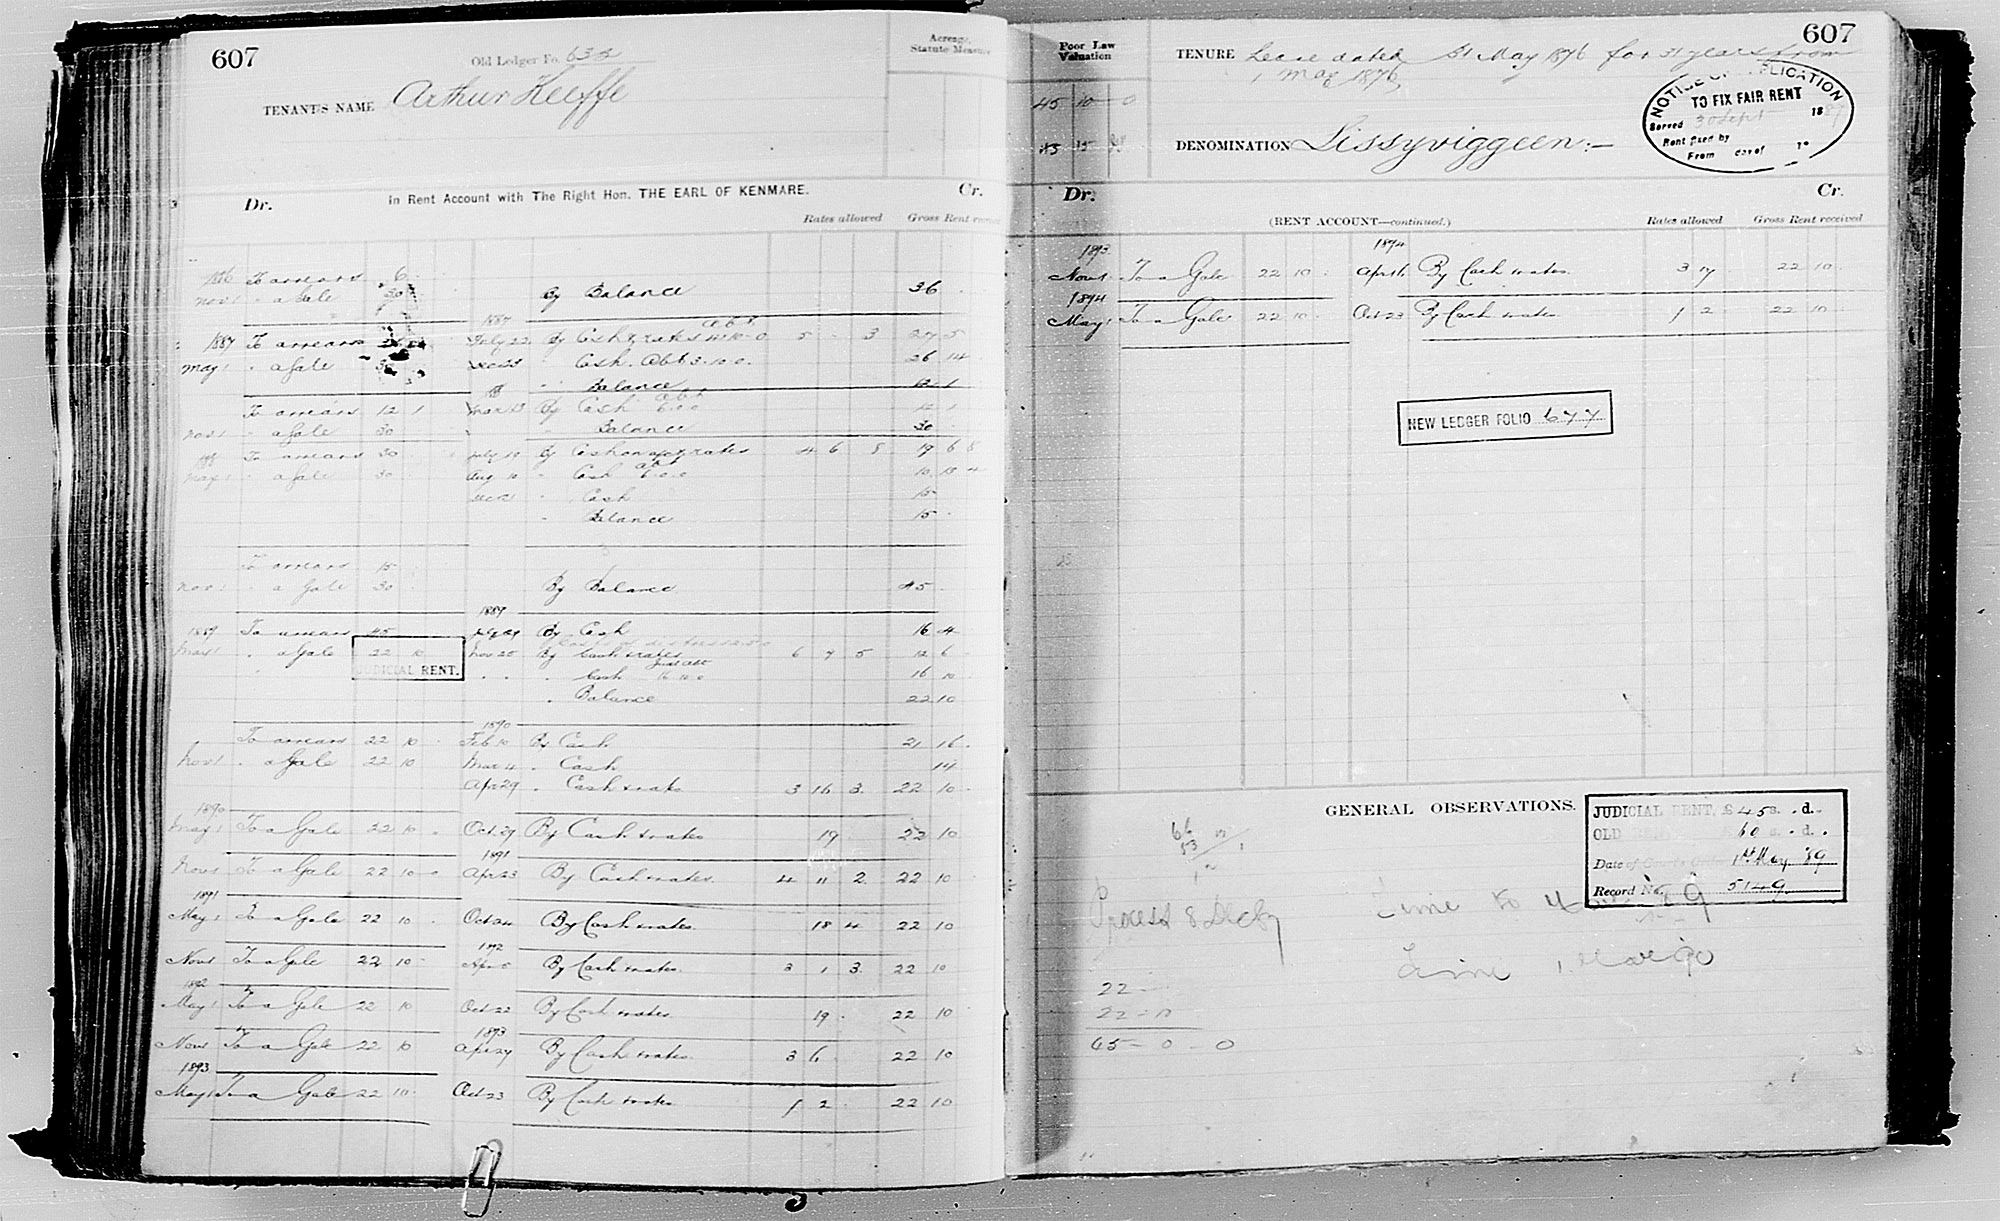 607
Old Ledger Fo. 632
TENANT'S NAME Arthur Keeffe
Acreage, Statute Measure
In Rent Account with The Right Hon. THE EARL OF KENMARE.
Dr. Cr.
Rates allowed Gross Rent received
To arrears 6
Nov 1 " a Gale 30 By Balance 36
1887
1887 To arrears July 22 By Cash & rates 5 3 27 5
May 1 " a Gale 30 Cash. Abt 3.10.0. 26 14
" Balance 12 1
To arrears 12 1 Mar 13 By Cash 6.0.0 12 1
Nov 1 " a Gale 30 Balance 30
To arrears 30 July 19 By Cash on a/c & rates 4 6 8 19 6 8
May 1 " a Gale 30 Aug 10 " Cash 6.0.0 10 13 4
Dec 21 " Cash 15
" Balance 15
To arrears 15
Nov 1 " a Gale 30 By Balance 45
1889
1889 To arrears 45 By Cash 16 4
May 1 " a Gale 22 10 Nov 25 By Cash & rates 6 7 5 12 6
JUDICIAL RENT.
" Cash 16 10 0 16 10
" Balance 22 10
1890
To arrears 22 10 Feb 10 By Cash 21 16
Nov 1 " a Gale 22 10 Mar 4 " Cash 14
Apr 29 " Cash & rates 3 16 3 22 10
1890
May 1 To a Gale 22 10 Oct 29 By Cash & rates 19 22 10
1891
Nov 1 To a Gale 22 10 Apr 23 By Cash & rates. 4 11 2 22 10
1891
May 1 To a Gale 22 10 Oct 24 By Cash & rates. 18 4 22 10
1892
Nov 1 To a Gale 22 10 Apr 5 By Cash & rates. 3 1 3 22 10
1892
May 1 To a Gale 22 10 Oct 22 By Cash & rates. 19 22 10
1893
Nov 1 To a Gale 22 10 Apr 24 By Cash & rates. 3 6 22 10
1893
May 1 To a Gale 22 10 Oct 23 By Cash & rates 1 2 22 10
607
Poor Law Valuation
45 10 0
TENURE Lease dated 31 May 1876 for 31 years from
1 May 1876
NOTICE OF APPLICATION
TO FIX FAIR RENT
Served 30 Sept 1887
Rent fixed by
From day of 18
DENOMINATION Lissyviggeen:—
Dr. Cr.
(RENT ACCOUNT—continued.)
Rates allowed Gross Rent received
1893 1894
Nov 1 To a Gale 22 10 Apr 16 By Cash & rates. 3 17 22 10
1894
May 1 To a Gale 22 10 Oct 23 By Cash & rates 1 2 22 10
NEW LEDGER FOLIO 677
GENERAL OBSERVATIONS.
JUDICIAL RENT, £45 s. . d..
OLD RENT £60 s. . d. .
Date of Courts Order 1st May '89
Record No. 5149
Time to
Time 1 Mar 90
22
22 - 10
65 - 0 - 0